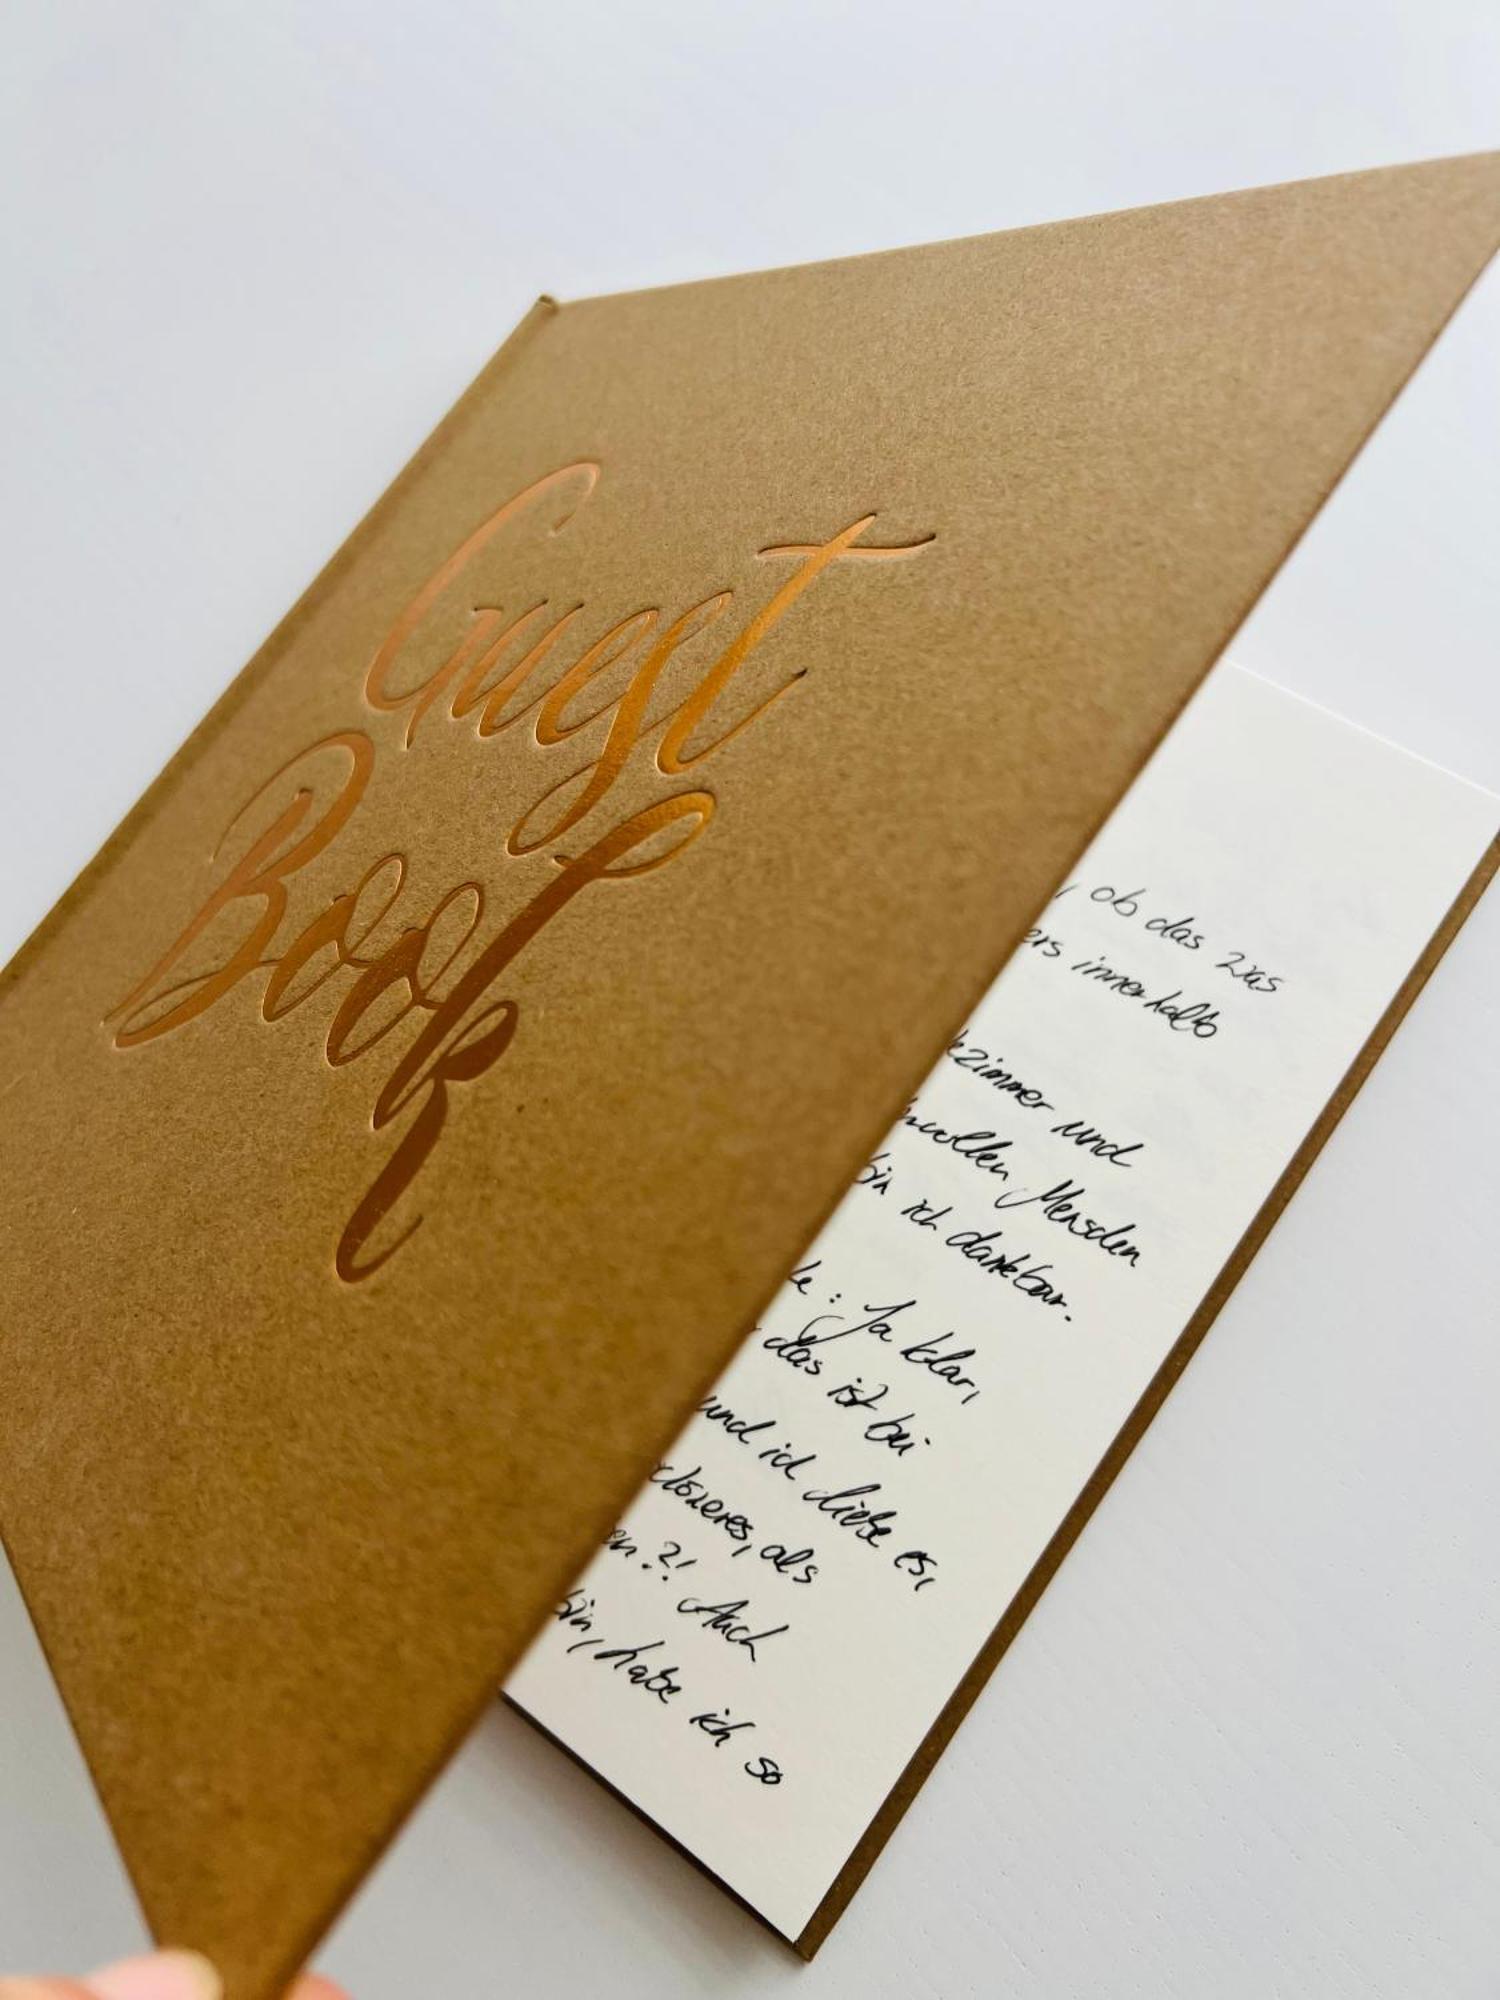 Guest
Book
, ob das was
ers innerhalb
ezimmer und
vollen Menschen
bin ich dankbar.
: Ja klar,
das ist bei
und ich liebe es,
als
en?! Auch
bin, habe ich so